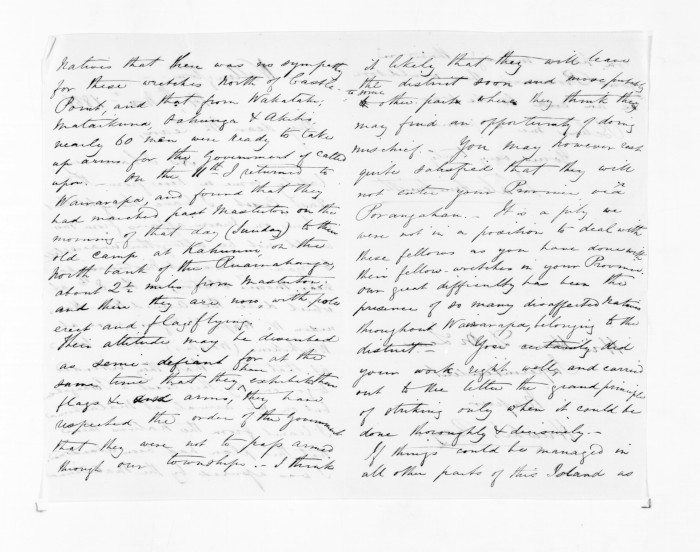 Natives that there was no sympathy
for these wretches North of Castle-
Point, and that from Wakataki
Mataikuna Pahunga & Akitio
nearly 60 men were ready to take
up arms for the Government if called
upon. - On the 11th I returned to
Wairarapa, and found that they
had marched past Masterton on the
morning of that day (Sunday) to their
old camp at Kahumu, on the
North bank of the Ruamahanga,
about 2½ miles from Masterton,
and there they are now, with poles
erect and flags flying.
Their attitude may be described
as semi-defiant for at the
same time that they have exhibited their
flags & and arms, they have
respected the order of the Government
that they were not to pass armed
through our townships. - I think
it likely that they will leave
the district soon and move possibly
to some other part where they think they
may find an opportunity of doing
mischief - You may however rest
quite satisfied that they will
not enter your Province via
Porangahau. - It is a pity we
were not in a position to deal with
these fellows as you have done with
their fellow-wretches in your Province,
our great difficulty has been the
presence of so many disaffected natives
throughout Wairarapa, belonging to the
district - You certainly did
your work right well, and carried
out to the letter the grand principle
of striking only when it could be
done thoroughly & decisively. -
If things could be managed in
all other parts of this Island as